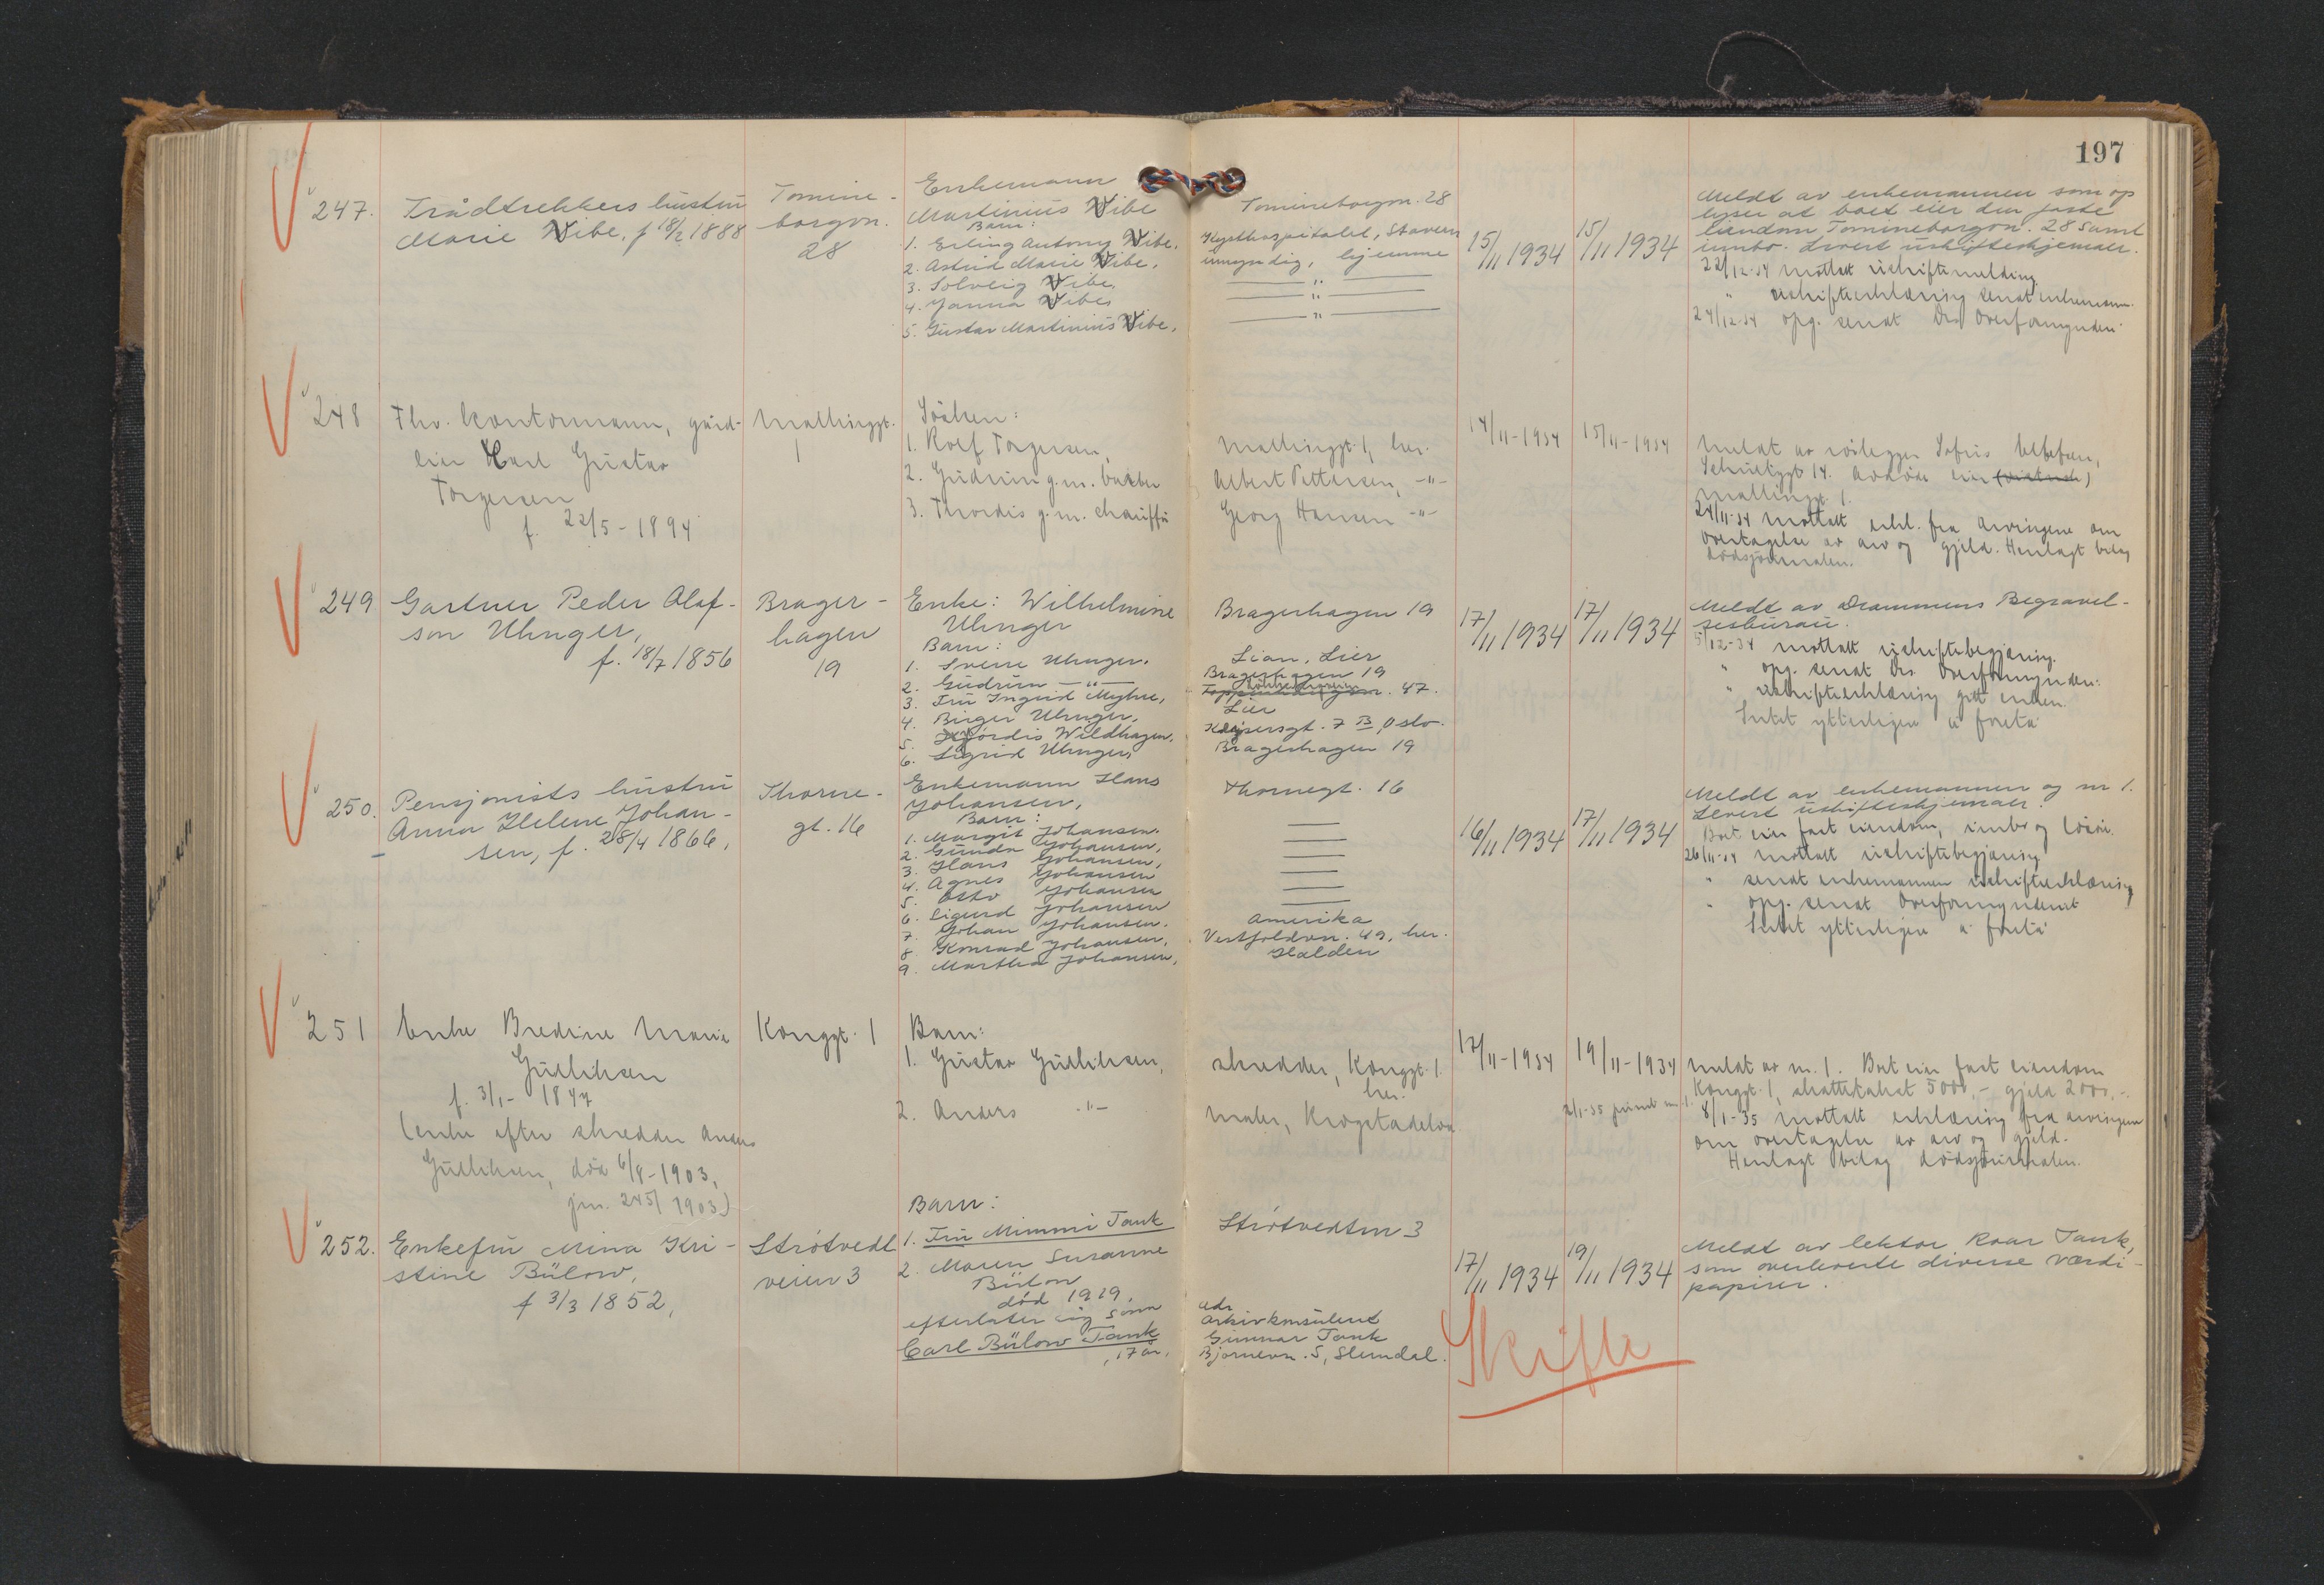 197
247.
Trådtrekkers hustru
Marie Vibe, f 18/2 1888
Tomine-
borgvn.
28
Enkemann
Martinius Vibe
Barn:
1. Erling Antony Vibe,
2. Astrid Marie Vibe,
3. Solveig Vibe,
4. Janna Vibe,
5. Gustav Martinius Vibe,
Tomineborgvn. 28
Kysthospitalet, Stavern
umyndig, hjemme
— " —
— " —
— " —
15/11 1934
15/11 1934
Meldt av enkemannen som op
lyser at boet eier den faste
eiendom Tomineborgvn. 28 samt
innbo. Levert uskifteskjemaer.
22/12-34 mottatt uskiftemelding.
" uskifteerklæring sendt enkemann.
24/12-34 opg. sendt Drs Overformynderi
248
Fhv. kontormann, gård-
eier Karl Gustav
Torgersen
f. 22/5-1894
Mallinggt.
1
Søsken:
1. Rolf Torgersen,
2. Gudrun g.m. barber
3. Thordis g.m. chauffør
Mallinggt. 1, her.
Albert Pettersen, -"-
Georg Hansen -"-
14/11-1934
15/11-1934
Meldt av
14. Avdøde eier
Mallinggt 1.
24/11-34 mottatt erkl. fra arvingene om
overtagelse av arv og gjeld. Henlagt bilag
dødsjournalen.
249
Gartner Peder Olaf-
son Uhnger,
f. 18/7 1856
Brager-
hagen
19
Enke: Wilhelmine
Uhnger
Barn:
1. Sverre Uhnger.
2. Gudrun -"-
3. Fru Ingrid Myhre,
4. Birger Uhnger,
5. Hjørdis Wildhagen,
6. Sigrid Uhnger,
Bragerhagen 19
Lian, Lier
Bragerhagen 19
47.
Lier
Keysersgt. 7 B, Oslo.
Bragerhagen 19
17/11 1934
17/11 1934
Meldt av Drammens Begravel-
sesbureau.
5/12-34 mottatt uskiftebegjæring.
" opg. sendt Drs. Overformynderi.
" uskifteerklæring gitt enken.
Intet ytterligere å foreta
250.
Pensjonists hustru
Anna Helene Johan-
sen, f. 28/4 1866,
Thorne-
gt. 16
Enkemann Hans
Johansen,
Barn:
1. Margit Johansen.
2. Gunda Johansen,
3. Hans Johansen,
4. Agnes Johansen
5. Otto Johansen
6. Sigurd Johansen
7. Johan Johansen.
8. Konrad Johansen,
9. Martha Johansen,
Thornegt. 16
—
—
—
—
—
—
Amerika
Vestfoldvn. 49, her.
Halden
16/11 1934
17/11 1934
Meldt av enkemannen og nr 1.
Levert uskifteskjemaer.
Boet eier fast eiendom, innbo og løsøre.
26/11-34 mottatt uskiftebegjæring
" sendt enkemannen uskifteerklæring
" opg. sendt Overformynderiet
Intet ytterligere å foreta
251
Enke Bredine Marie
Gulliksen
f. 3/1- 1847
(enke efter skredder Anders
Gulliksen, død 6/9-1903,
jnr. 245/1903)
Konggt. 1
Barn:
1. Gustav Gulliksen,
2. Anders -"-
skredder, Konggt. 1.
her.
maler, Krogstadelva
17/11-1934
19/11-1934
Meldt av nr. 1. Boet eier fast eiendom
Konggt. 1, skattetakst 5000,- gjeld 2000,-.
8/1-35 mottatt erklæring fra arvingene
om overtagelse av arv og gjeld.
Henlagt bilag dødsjournalen.
252.
Enkefru Mina Kri-
stine Bülow,
f 3/3 1852,
Strøtvedt
veien 3
Barn:
1. Fru Mimmi Tank
2. Maren Susanne
Bülow
død 1919,
efterlater sig sønn
Carl Bülow Tank
, 17 år,
Strøtvedtvn 3
adr.
arkivkonsulent
Gunnar Tank
Bjørnevn. 5, Slemdal.
17/11 1934
19/11 1934
Meldt av lektor Roar Tank,
som overleverte diverse værdi-
papirer.
Skifte